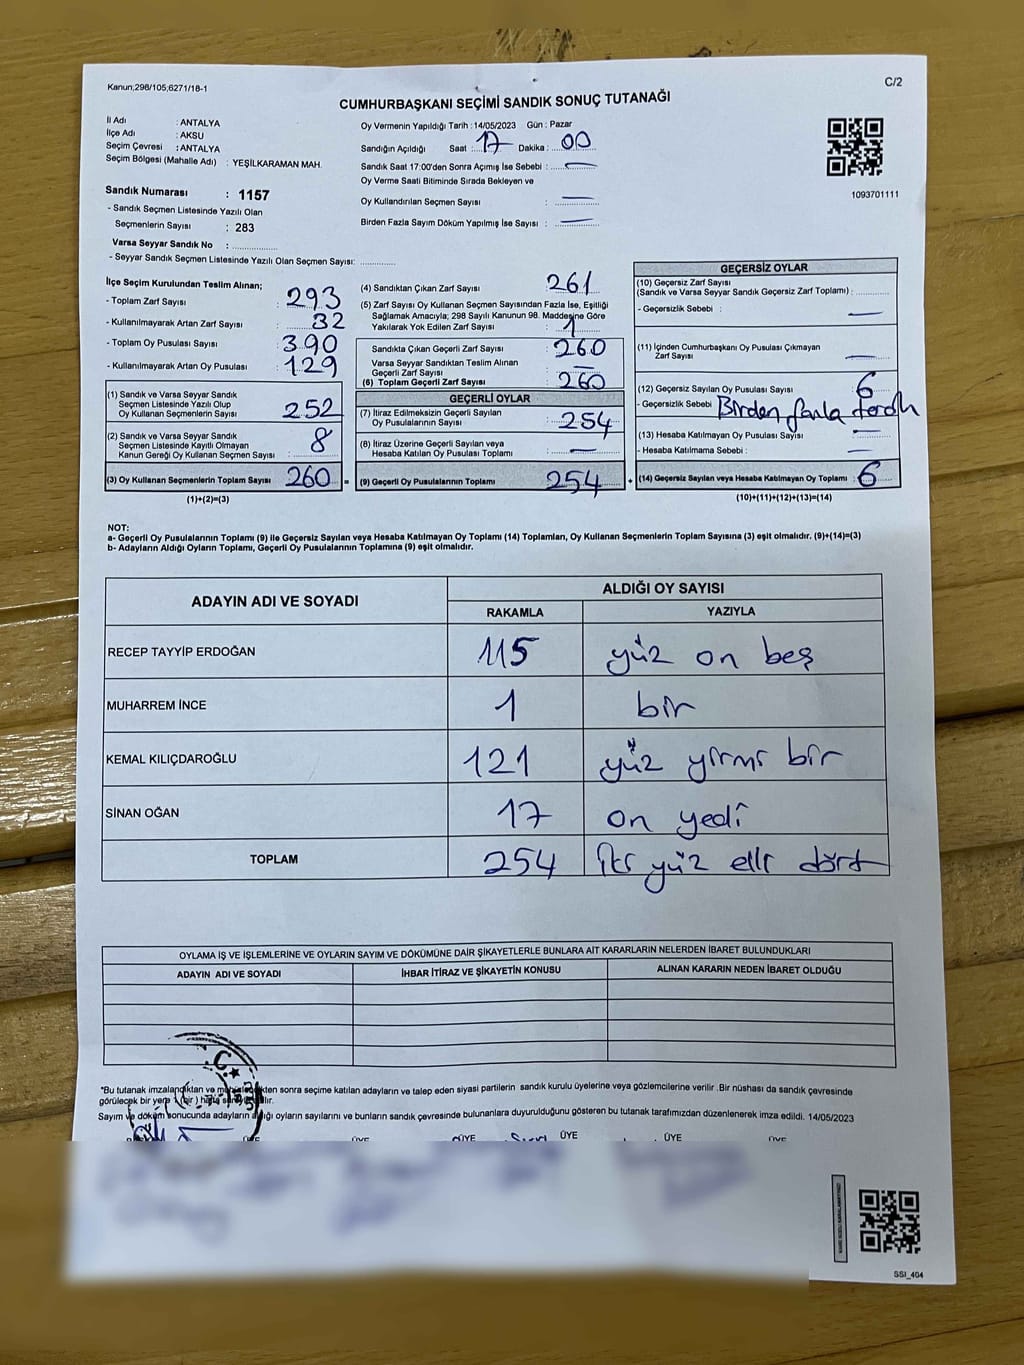 Kanun;298/105;6271/18-1
C/2
CUMHURBAŞKANI SEÇİMİ SANDIK SONUÇ TUTANAĞI
İl Adı : ANTALYA
İlçe Adı : AKSU
Seçim Çevresi : ANTALYA
Seçim Bölgesi (Mahalle Adı) : YEŞİLKARAMAN MAH.
Sandık Numarası : 1157
- Sandık Seçmen Listesinde Yazılı Olan
Seçmenlerin Sayısı : 283
Varsa Seyyar Sandık No : ..............
- Seyyar Sandık Seçmen Listesinde Yazılı Olan Seçmen Sayısı: ............
Oy Vermenin Yapıldığı Tarih : 14/05/2023 Gün : Pazar
Sandığın Açıldığı Saat : 17 Dakika : 00
Sandık Saat 17:00'den Sonra Açımış İse Sebebi : —
Oy Verme Saati Bitiminde Sırada Bekleyen ve
Oy Kullandırılan Seçmen Sayısı : —
Birden Fazla Sayım Döküm Yapılmış İse Sayısı : —
1093701111
İlçe Seçim Kurulundan Teslim Alınan;
- Toplam Zarf Sayısı : 293
- Kullanılmayarak Artan Zarf Sayısı : 32
- Toplam Oy Pusulası Sayısı : 390
- Kullanılmayarak Artan Oy Pusulası : 129
(1) Sandık ve Varsa Seyyar Sandık
Seçmen Listesinde Yazılı Olup
Oy Kullanan Seçmenlerin Sayısı : 252
(2) Sandık ve Varsa Seyyar Sandık
Seçmen Listesinde Kayıtlı Olmayan
Kanun Gereği Oy Kullanan Seçmen Sayısı : 8
(3) Oy Kullanan Seçmenlerin Toplam Sayısı : 260 =
(1)+(2)=(3)
(4) Sandıktan Çıkan Zarf Sayısı : 261
(5) Zarf Sayısı Oy Kullanan Seçmen Sayısından Fazla İse, Eşitliği
Sağlamak Amacıyla; 298 Sayılı Kanunun 98. Maddesine Göre
Yakılarak Yok Edilen Zarf Sayısı : 1
Sandıkta Çıkan Geçerli Zarf Sayısı : 260
Varsa Seyyar Sandıktan Teslim Alınan
Geçerli Zarf Sayısı : —
(6) Toplam Geçerli Zarf Sayısı : 260
GEÇERLİ OYLAR
(7) İtiraz Edilmeksizin Geçerli Sayılan
Oy Pusulalarının Sayısı : 254
(8) İtiraz Üzerine Geçerli Sayılan veya
Hesaba Katılan Oy Pusulası Toplamı : —
(9) Geçerli Oy Pusulalarının Toplamı 254 +
GEÇERSİZ OYLAR
(10) Geçersiz Zarf Sayısı
(Sandık ve Varsa Seyyar Sandık Geçersiz Zarf Toplamı) : ............
- Geçersizlik Sebebi : —
(11) İçinden Cumhurbaşkanı Oy Pusulası Çıkmayan
Zarf Sayısı : —
(12) Geçersiz Sayılan Oy Pusulası Sayısı : 6
- Geçersizlik Sebebi Birden fazla tercih
(13) Hesaba Katılmayan Oy Pusulası Sayısı : —
- Hesaba Katılmama Sebebi : —
(14) Geçersiz Sayılan veya Hesaba Katılmayan Oy Toplamı : 6
(10)+(11)+(12)+(13)=(14)
NOT:
a- Geçerli Oy Pusulalarının Toplamı (9) ile Geçersiz Sayılan veya Hesaba Katılmayan Oy Toplamı (14) Toplamları, Oy Kullanan Seçmenlerin Toplam Sayısına (3) eşit olmalıdır. (9)+(14)=(3)
b- Adayların Aldığı Oyların Toplamı, Geçerli Oy Pusulalarının Toplamına (9) eşit olmalıdır.
ADAYIN ADI VE SOYADI
ALDIĞI OY SAYISI
RAKAMLA YAZIYLA
RECEP TAYYİP ERDOĞAN 115 yüz on beş
MUHARREM İNCE 1 bir
KEMAL KILIÇDAROĞLU 121 yüz yirmi bir
SİNAN OĞAN 17 on yedi
TOPLAM 254 iki yüz elli dört
OYLAMA İŞ VE İŞLEMLERİNE VE OYLARIN SAYIM VE DÖKÜMÜNE DAİR ŞİKAYETLERLE BUNLARA AİT KARARLARIN NELERDEN İBARET BULUNDUKLARI
ADAYIN ADI VE SOYADI İHBAR İTİRAZ VE ŞİKAYETİN KONUSU ALINAN KARARIN NEDEN İBARET OLDUĞU
*Bu tutanak imzalandıktan ve sonra seçime katılan adayların ve talep eden siyasi partilerin sandık kurulu üyelerine veya gözlemcilerine verilir .Bir nüshası da sandık çevresinde
görülecek bir yere (bir) hafta
Sayım ve döküm sonucunda adayların aldığı oyların sayılarını ve bunların sandık çevresinde bulunanlara duyurulduğunu gösteren bu tutanak tarafımızdan düzenlenerek imza edildi. 14/05/2023
ÜYE ÜYE ÜYE ÜYE ÜYE ÜYE
SSI_404